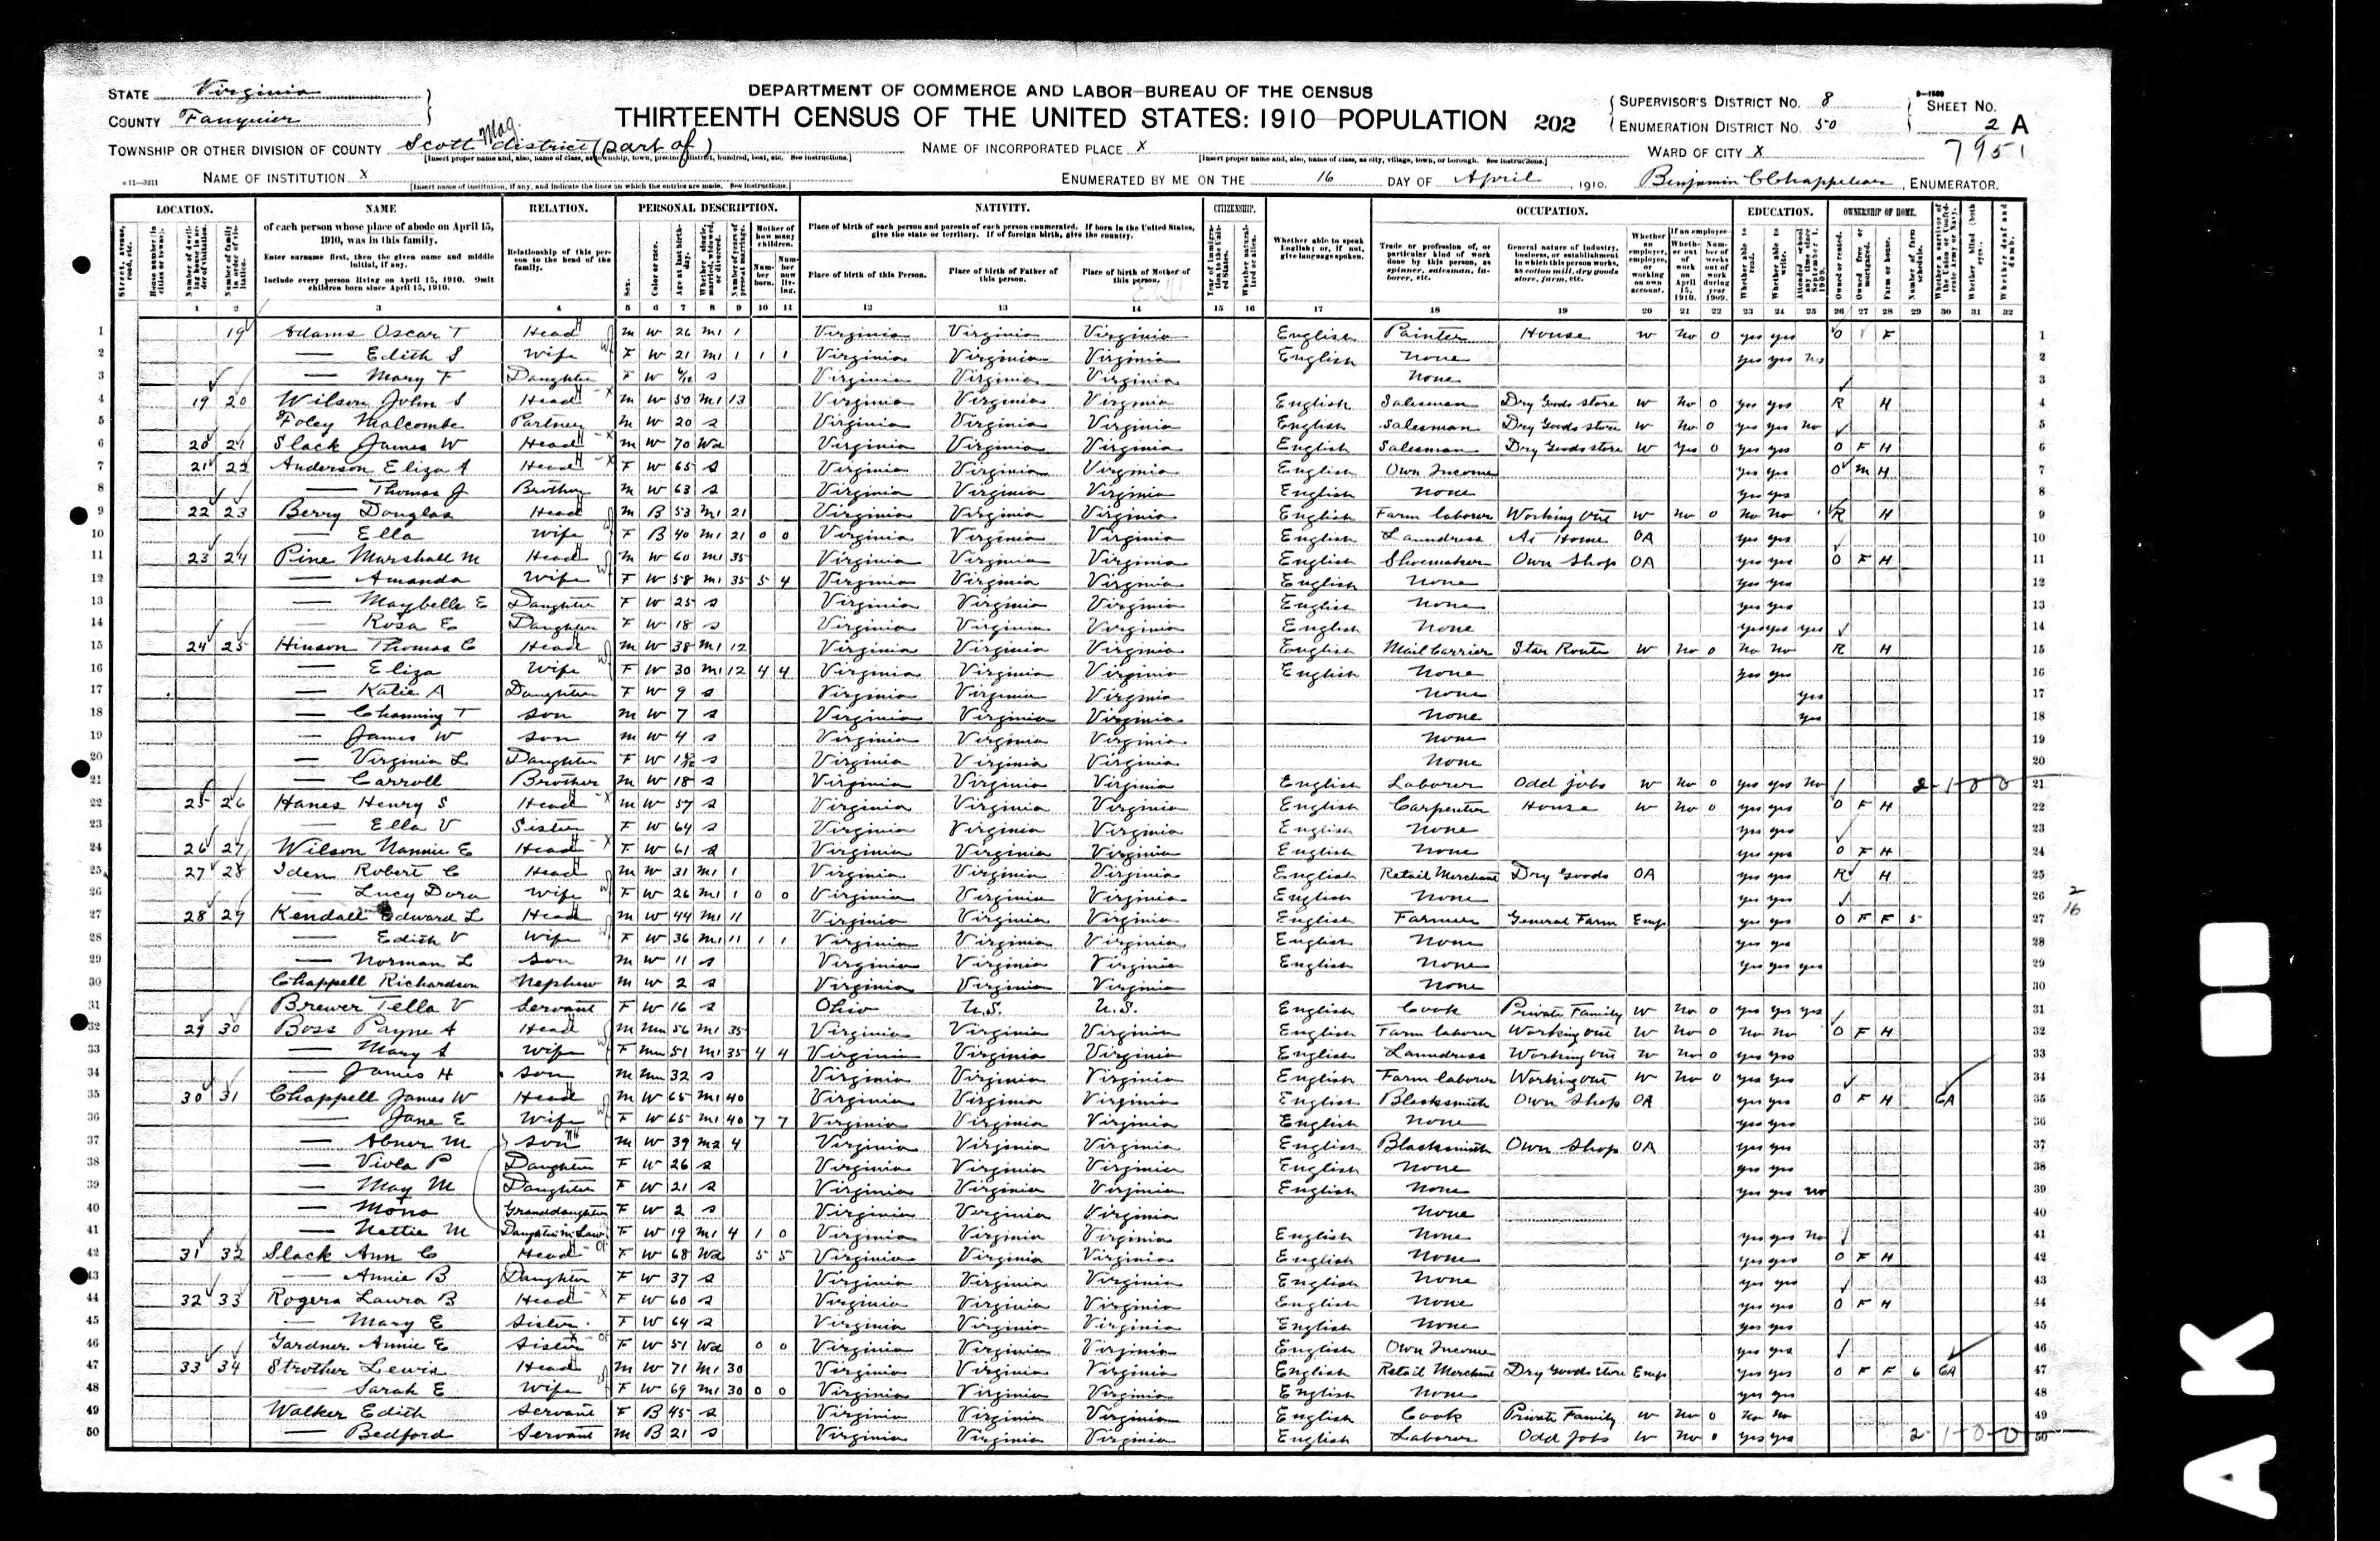 STATE Virginia
COUNTY Fauquier
TOWNSHIP OR OTHER DIVISION OF COUNTY Scott Mag. district (part of)
NAME OF INSTITUTION X
DEPARTMENT OF COMMERCE AND LABOR—BUREAU OF THE CENSUS
THIRTEENTH CENSUS OF THE UNITED STATES: 1910—POPULATION 202
NAME OF INCORPORATED PLACE X
ENUMERATED BY ME ON THE 16 DAY OF April, 1910. Benjamin C Chappelear, ENUMERATOR.
SUPERVISOR'S DISTRICT No. 8
ENUMERATION DISTRICT No. 50
SHEET No. 2 A
WARD OF CITY X
7951
LOCATION. NAME RELATION. PERSONAL DESCRIPTION. NATIVITY. CITIZENSHIP. OCCUPATION. EDUCATION. OWNERSHIP OF HOME.
of each person whose place of abode on April 15, 1910, was in this family.
Enter surname first, then the given name and middle initial, if any.
Include every person living on April 15, 1910. Omit children born since April 15, 1910.
Relationship of this person to the head of the family.
Place of birth of each person and parents of each person enumerated. If born in the United States, give the state or territory. If of foreign birth, give the country.
Place of birth of this Person. Place of birth of Father of this person. Place of birth of Mother of this person.
Whether able to speak English; or, if not, give language spoken.
Trade or profession of, or particular kind of work done by this person, as spinner, salesman, laborer, etc.
General nature of industry, business, or establishment in which this person works, as cotton mill, dry goods store, farm, etc.
1 19 Adams Oscar T Head M W 26 M1 1 Virginia Virginia Virginia English Painter House W No 0 yes yes O F 1
2 — Edith S Wife F W 21 M1 1 1 1 Virginia Virginia Virginia English None yes yes No 2
3 — Mary F Daughter F W S Virginia Virginia Virginia None 3
4 19 20 Wilson John S Head M W 50 M1 13 Virginia Virginia Virginia English Salesman Dry Goods store W No 0 yes yes R H 4
5 Foley Malcombe Partner M W 20 S Virginia Virginia Virginia English Salesman Dry Goods store W No 0 yes yes No 5
6 20 21 Slack James W Head M W 70 Wd Virginia Virginia Virginia English Salesman Dry Goods store W Yes 0 yes yes O F H 6
7 21 22 Anderson Eliza A Head F W 65 S Virginia Virginia Virginia English Own Income yes yes O M H 7
8 — Thomas J Brother M W 63 S Virginia Virginia Virginia English None yes yes 8
9 22 23 Berry Douglas Head M B 53 M1 21 Virginia Virginia Virginia English Farm laborer Working Out W No 0 No No R H 9
10 — Ella Wife F B 40 M1 21 0 0 Virginia Virginia Virginia English Laundress At Home OA yes yes 10
11 23 24 Pine Marshall M Head M W 60 M1 35 Virginia Virginia Virginia English Shoemaker Own Shop OA yes yes O F H 11
12 — Amanda Wife F W 58 M1 35 5 4 Virginia Virginia Virginia English None yes yes 12
13 — Maybelle E Daughter F W 25 S Virginia Virginia Virginia English None yes yes 13
14 — Rosa E Daughter F W 18 S Virginia Virginia Virginia English None yes yes yes 14
15 24 25 Hinson Thomas C Head M W 38 M1 12 Virginia Virginia Virginia English Mail Carrier Star Route W No 0 No No R H 15
16 — Eliza Wife F W 30 M1 12 4 4 Virginia Virginia Virginia English None yes yes 16
17 — Katie A Daughter F W 9 S Virginia Virginia Virginia None yes 17
18 — Channing T Son M W 7 S Virginia Virginia Virginia None yes 18
19 — James W Son M W 4 S Virginia Virginia Virginia None 19
20 — Virginia L Daughter F W S Virginia Virginia Virginia None 20
21 — Carroll Brother M W 18 S Virginia Virginia Virginia English Laborer Odd jobs W No 0 yes yes No 2-1-0-0 21
22 25 26 Hanes Henry S Head M W 57 S Virginia Virginia Virginia English Carpenter House W No 0 yes yes O F H 22
23 — Ella V Sister F W 64 S Virginia Virginia Virginia English None yes yes 23
24 26 27 Wilson Nannie E Head F W 61 S Virginia Virginia Virginia English None yes yes O F H 24
25 27 28 Iden Robert C Head M W 31 M1 1 Virginia Virginia Virginia English Retail Merchant Dry Goods OA yes yes R H 25
26 — Lucy Dora Wife F W 26 M1 1 0 0 Virginia Virginia Virginia English None yes yes 26
27 28 29 Kendall Edward L Head M W 44 M1 11 Virginia Virginia Virginia English Farmer General Farm Emp yes yes O F F 5 27
28 — Edith V Wife F W 36 M1 11 1 1 Virginia Virginia Virginia English None yes yes 28
29 — Norman L Son M W 11 S Virginia Virginia Virginia English None yes yes yes 29
30 Chappell Richardson Nephew M W 2 S Virginia Virginia Virginia None 30
31 Brewer Tella V Servant F W 16 S Ohio U.S. U.S. English Cook Private Family W No 0 yes yes yes 31
32 29 30 Boss Payne A Head M Mu 56 M1 35 Virginia Virginia Virginia English Farm laborer Working out W No 0 No No O F H 32
33 — Mary S Wife F Mu 51 M1 35 4 4 Virginia Virginia Virginia English Laundress Working out W No 0 yes yes 33
34 — James H Son M Mu 32 S Virginia Virginia Virginia English Farm laborer Working out W No 0 yes yes 34
35 30 31 Chappell James W Head M W 65 M1 40 Virginia Virginia Virginia English Blacksmith Own Shop OA yes yes O F H CA 35
36 — Jane E Wife F W 65 M1 40 7 7 Virginia Virginia Virginia English None yes yes 36
37 — Abner M Son M W 39 M2 4 Virginia Virginia Virginia English Blacksmith Own Shop OA yes yes 37
38 — Viola P Daughter F W 26 S Virginia Virginia Virginia English None yes yes 38
39 — May M Daughter F W 21 S Virginia Virginia Virginia English None yes yes No 39
40 — Mona Granddaughter F W 2 S Virginia Virginia Virginia None 40
41 — Nettie M Daughter in Law F W 19 M1 4 1 0 Virginia Virginia Virginia English None yes yes No 41
42 31 32 Slack Ann C Head F W 68 Wd 5 5 Virginia Virginia Virginia English None yes yes O F H 42
43 — Annie B Daughter F W 37 S Virginia Virginia Virginia English None yes yes 43
44 32 33 Rogers Laura B Head F W 60 S Virginia Virginia Virginia English None yes yes O F H 44
45 — Mary E Sister F W 64 S Virginia Virginia Virginia English None yes yes 45
46 Gardner Annie E Sister F W 51 Wd 0 0 Virginia Virginia Virginia English Own Income yes yes 46
47 33 34 Strother Lewis Head M W 71 M1 30 Virginia Virginia Virginia English Retail Merchant Dry Goods Store Emp yes yes O F F 6 CA 47
48 — Sarah E Wife F W 69 M1 30 0 0 Virginia Virginia Virginia English None yes yes 48
49 Walker Edith Servant F B 45 S Virginia Virginia Virginia English Cook Private Family W No 0 No No 49
50 — Bedford Servant M B 21 S Virginia Virginia Virginia English Laborer Odd Jobs W No 0 yes yes 2-1-0-0 50
A K